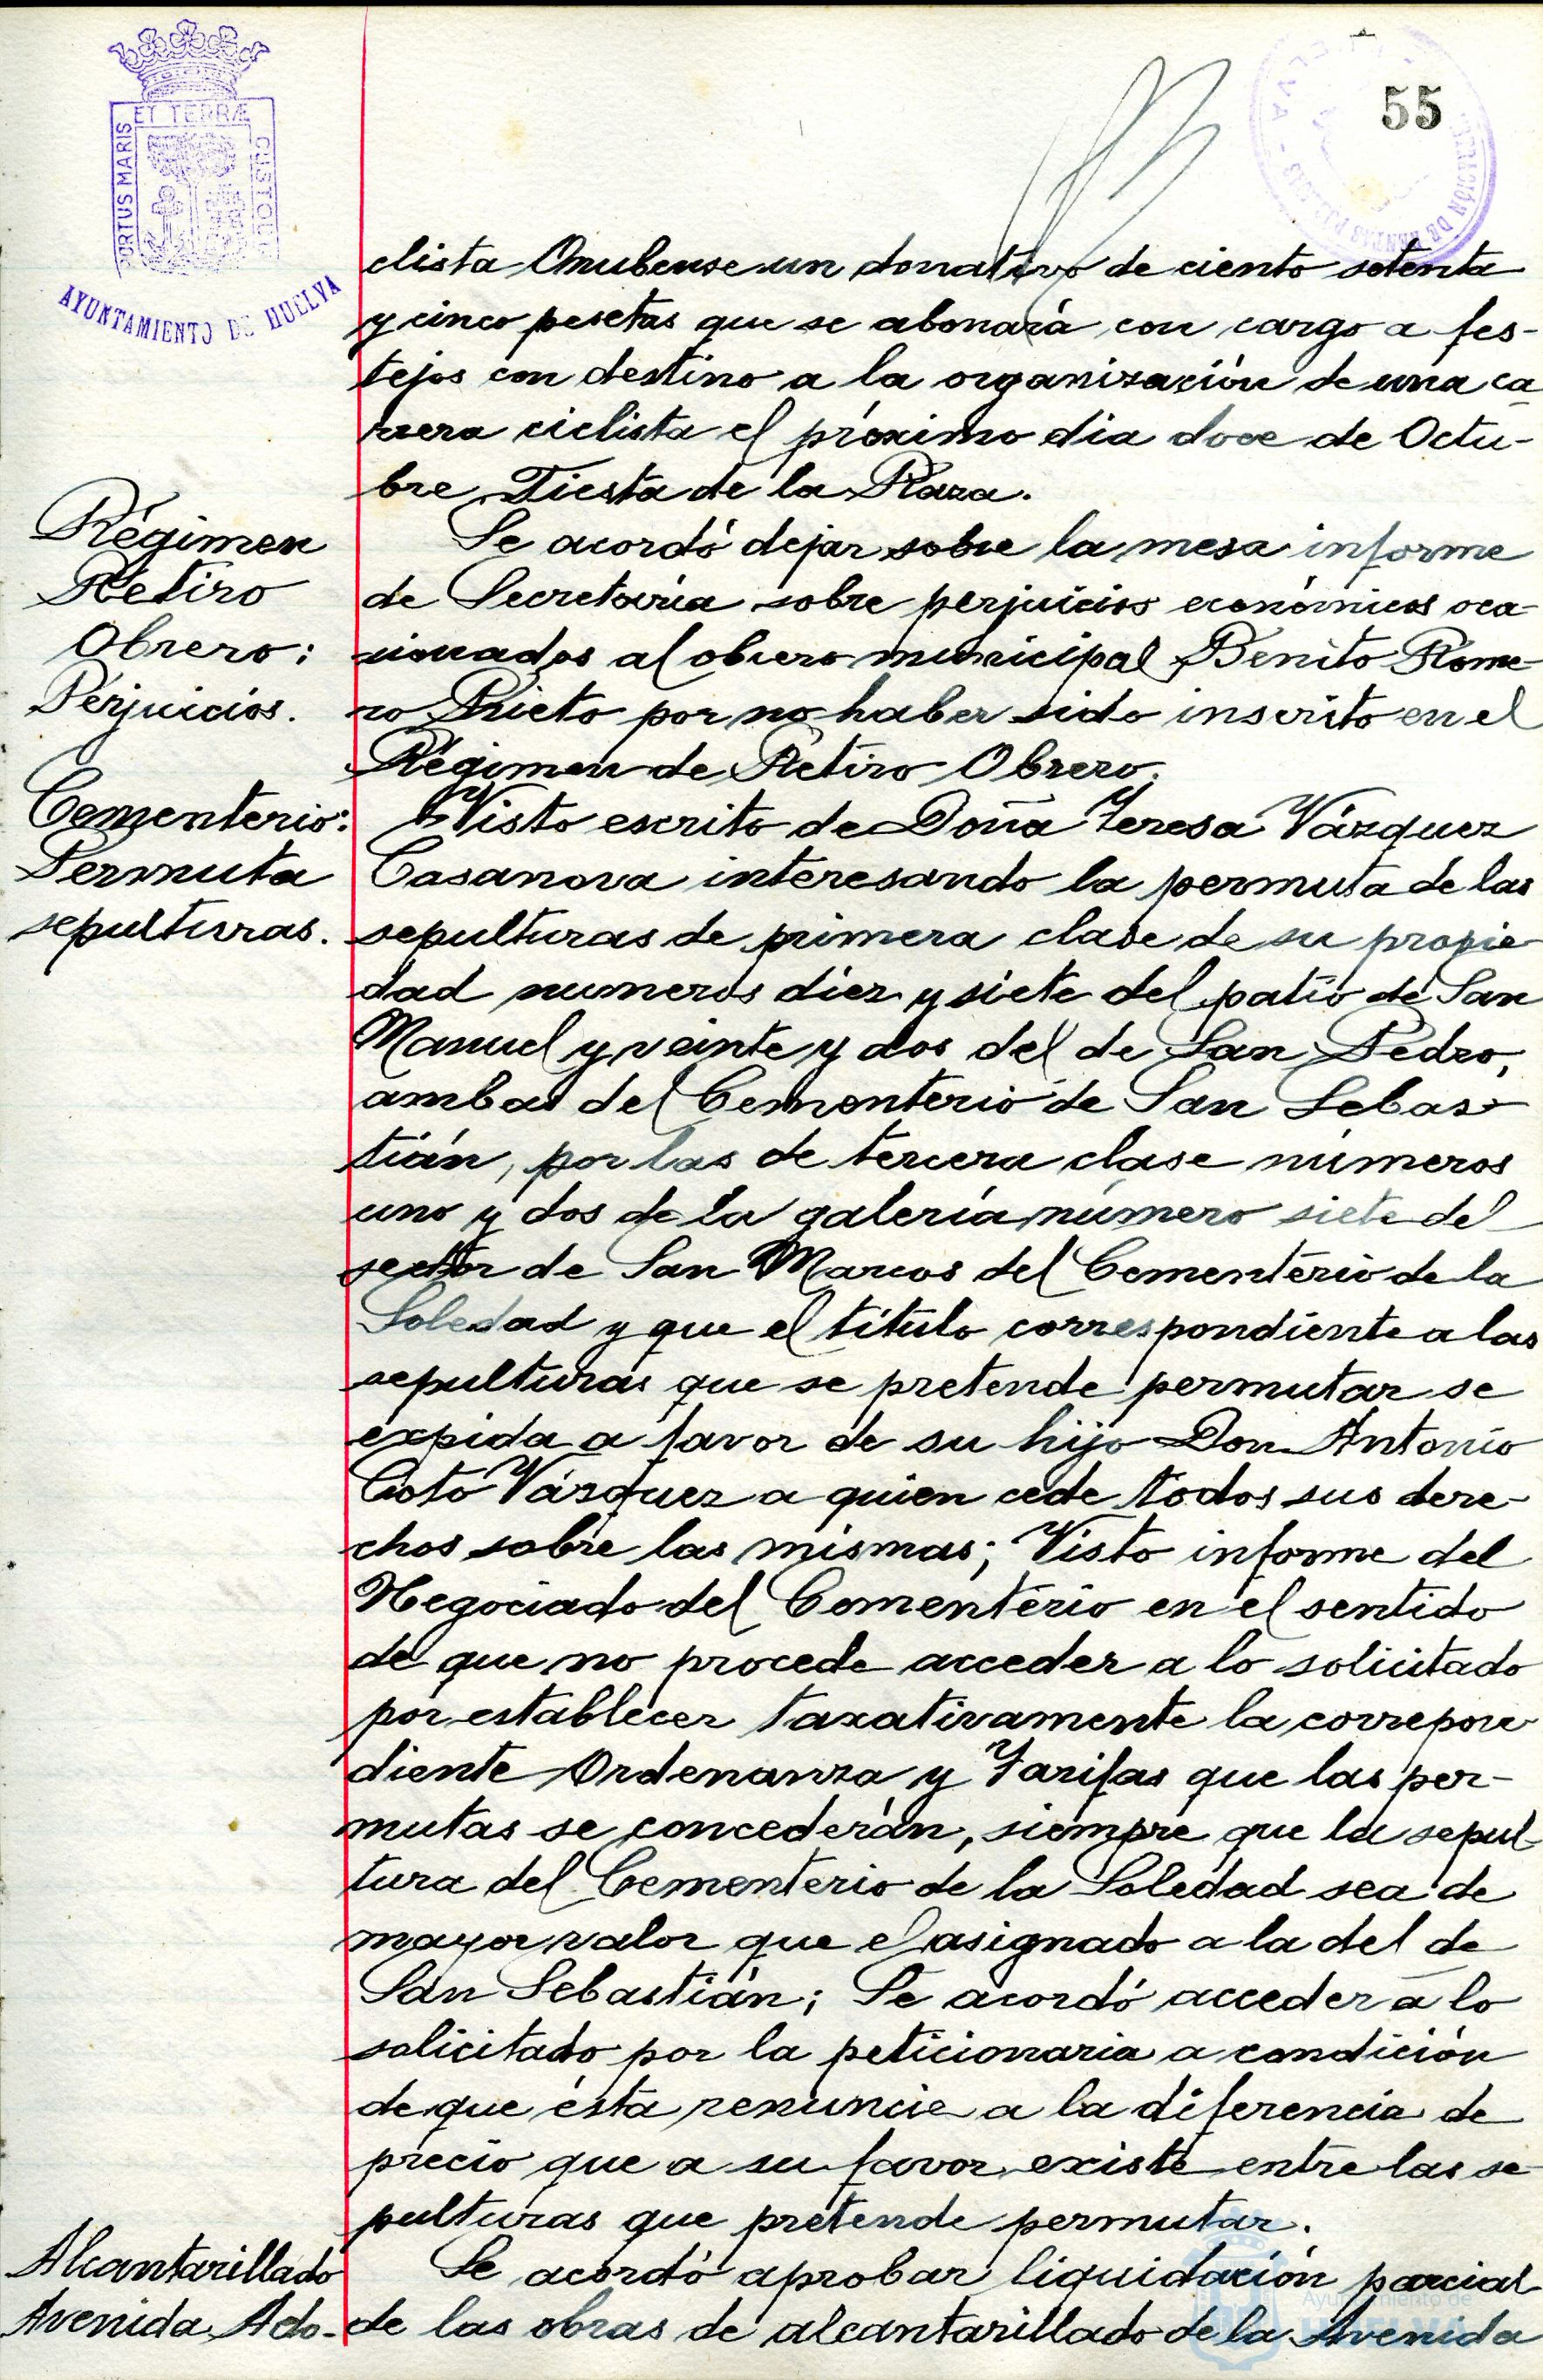 55
ET TERRÆ
PORTUS MARIS
CUSTODI
AYUNTAMIENTO DE HUELVA
clista Onubense un donativo de ciento setenta
y cinco pesetas que se abonará con cargo a fes-
tejos con destino a la organización de una ca
rrera ciclista el próximo dia doce de Octu-
bre, Fiesta de la Raza.
Régimen
Retiro
Obrero:
Perjuicios.
Se acordó dejar sobre la mesa informe
de Secretaría sobre perjuicios económicos oca-
sionados al obrero municipal Benito Rome-
ro Prieto por no haber sido inscrito en el
Régimen de Retiro Obrero.
Cementerio:
Permuta
sepulturas.
Visto escrito de Doña Teresa Vázquez
Casanova interesando la permuta de las
sepulturas de primera clase de su propie-
dad numeros diez y siete del patio de San
Manuel y veinte y dos del de San Pedro,
ambas del Cementerio de San Sebas-
tián, por las de tercera clase números
uno y dos de la galería número siete del
sector de San Marcos del Cementerio de la
Soledad y que el título correspondiente a las
sepulturas que se pretende permutar se
expida a favor de su hijo Don Antonio
Coto Vázquez a quien cede todos sus dere-
chos sobre las mismas; Visto informe del
Negociado del Cementerio en el sentido
de que no procede acceder a lo solicitado
por establecer taxativamente la correpon-
diente Ordenanza y Tarifas que las per-
mutas se concederán, siempre que la sepul-
tura del Cementerio de la Soledad sea de
mayor valor que el asignado a la del de
San Sebastián; Se acordó acceder a lo
solicitado por la peticionaria a condición
de que ésta renuncie a la diferencia de
precio que a su favor existe entre las se-
pulturas que pretende permutar.
Alcantarillado
Avenida Ado-
Se acordó aprobar liquidación parcial
de las obras de alcantarillado de la Avenida
Ayuntamiento de
HUELVA